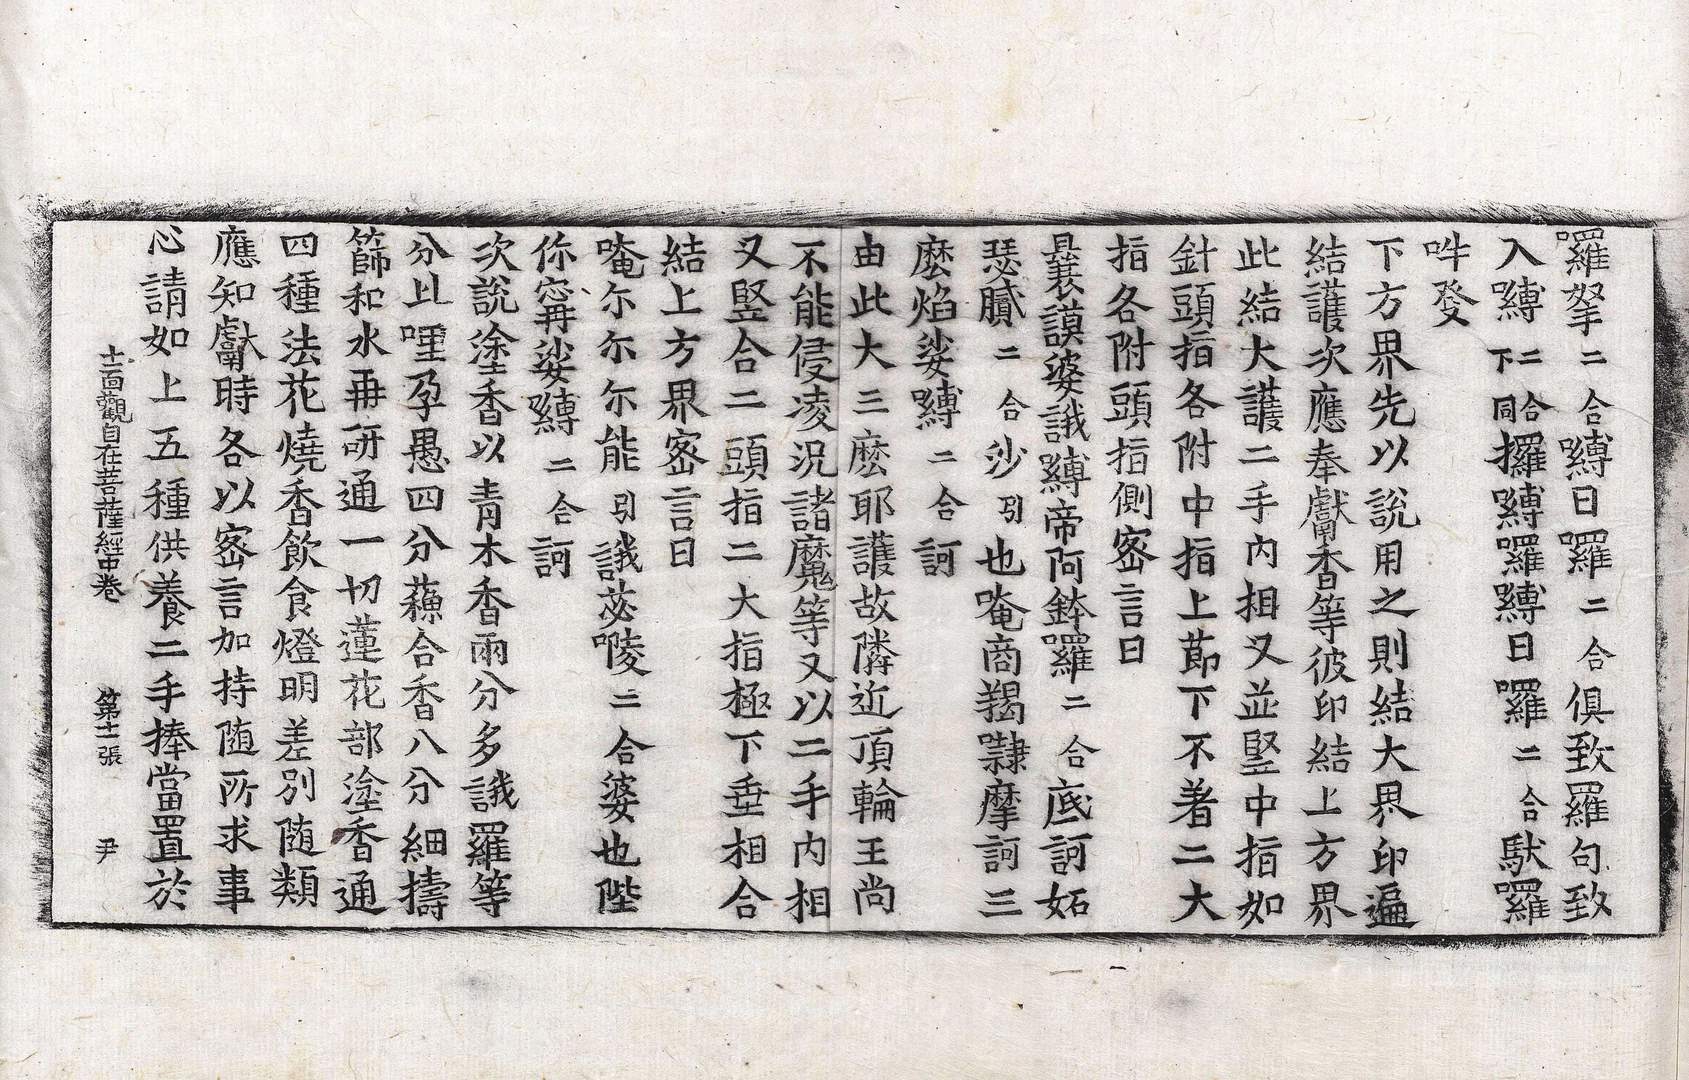 囉拏二合嚩日囉二合俱致羅句致
入嚩二合下同攞嚩囉嚩日囉二合馱囉
吽癹
下方界先以說用之則結大界印遍
結護次應奉獻香等彼印結上方界
此結大護二手内相叉並竪中指如
針頭指各附中指上節下不著二大
指各附頭指側密言曰
曩謨婆誐嚩帝阿鉢囉二合底訶妬
瑟膩二合沙引也唵商羯㘑摩訶三
麽焰娑嚩二合訶
由此大三麽耶護故隣近頂輪王尚
不能侵凌況諸魔等又以二手内相
叉竪合二頭指二大指極下垂相合
結上方界密言曰
唵尒尒尒能引誐苾㘄二合婆也陛
你甯娑嚩二合訶
次說塗香以青木香兩分多誐羅等
分比哩孕愚四分蘓合香八分細擣
篩和水再研通一切蓮花部塗香通
四種法花燒香飲食燈明差別随類
應知獻時各以密言加持随所求事
心請如上五種供養二手捧當置於
十一面觀自在菩薩經中卷 第十一張 尹